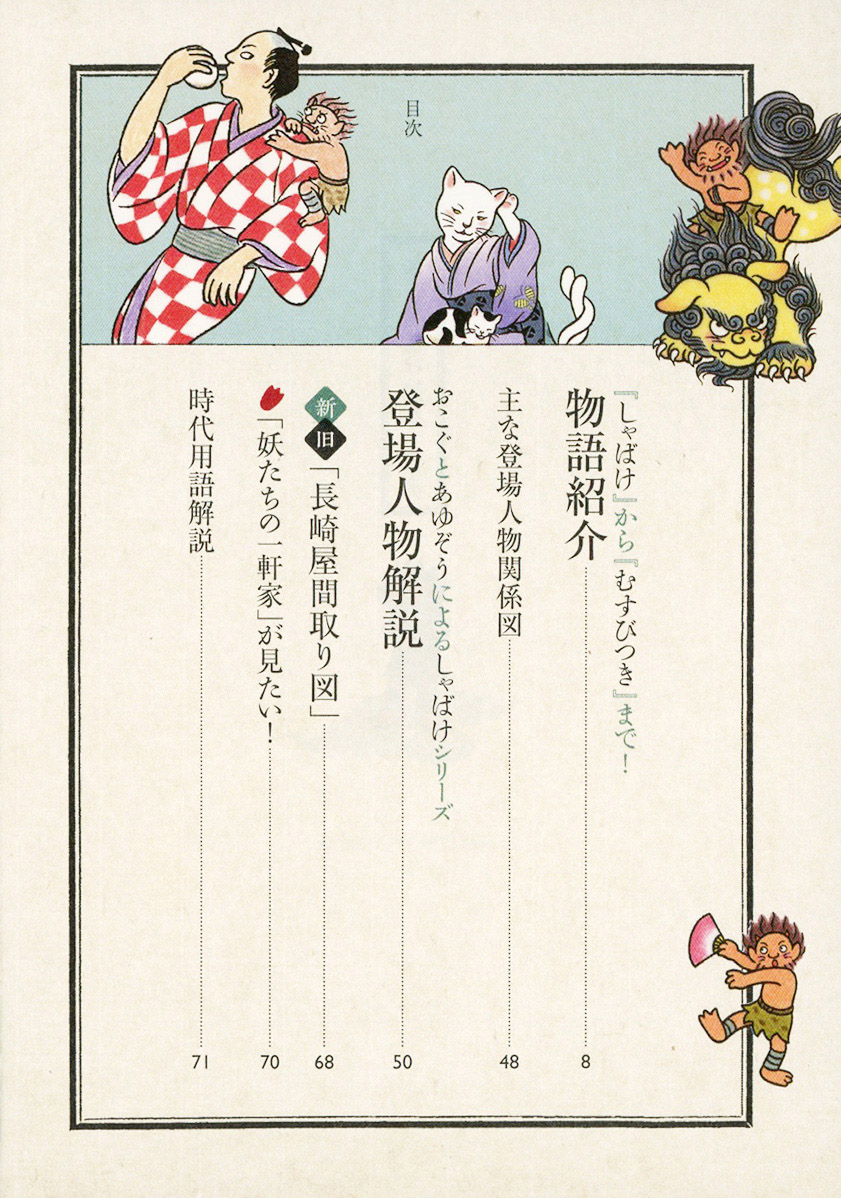 目次
『しゃばけ』から『むすびつき』まで！
物語紹介 8
主な登場人物関係図 48
おこぐとあゆぞうによるしゃばけシリーズ
登場人物解説 50
新旧「長崎屋間取り図」 68
「妖たちの一軒家」が見たい！ 70
時代用語解説 71